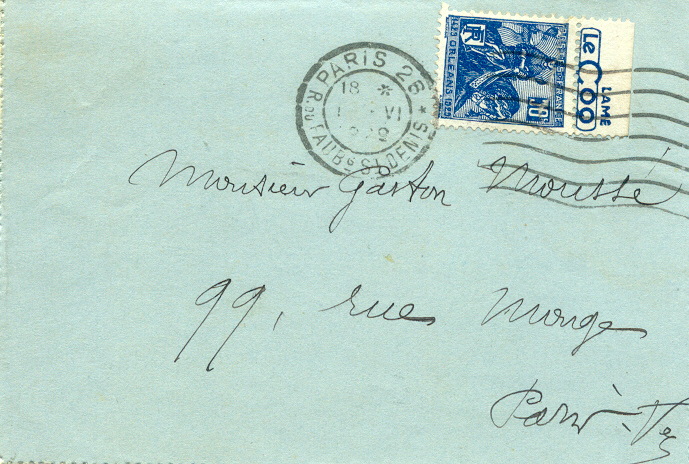 PARIS 26
R. DU FAUBG ST DENIS
18 *
VI
1429 ORLEANS 1929
RF
50
Le Coq
LAME
Monsieur Gaston Moussé
99, rue Monge
Paris-Ve